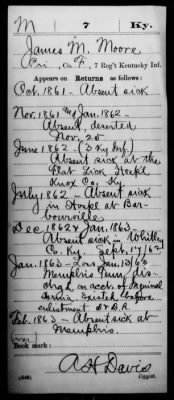 M 7 Ky.
James M. Moore
Pri, Co. F, 7 Reg't Kentucky Inf.
Appears on Returns as follows:
Oct. 1861 – Absent sick
Nov. 1861 and Jan. 1862 –
Absent, deserted
Nov. 25
June 1862 – (3 Ky Inf.)
Absent sick at the
Flat Lick Hosp'l
Knox Co. Ky.
July 1862 – Absent sick
in Hosp'l at Bar-
bourville
Dec. 1862 & Jan. 1863 –
Absent sick in Whitley
Co. Ky. Sept. 17/62
Jan. 1863 – Loss Jan. 13/63
Memphis Tenn, dis-
chg'd on acct. of Inguinal
Hernia. Existed before
enlistment
Feb. 1863 – Absent sick at
Memphis.
Book mark:
A H Davis
(646) Copyist.